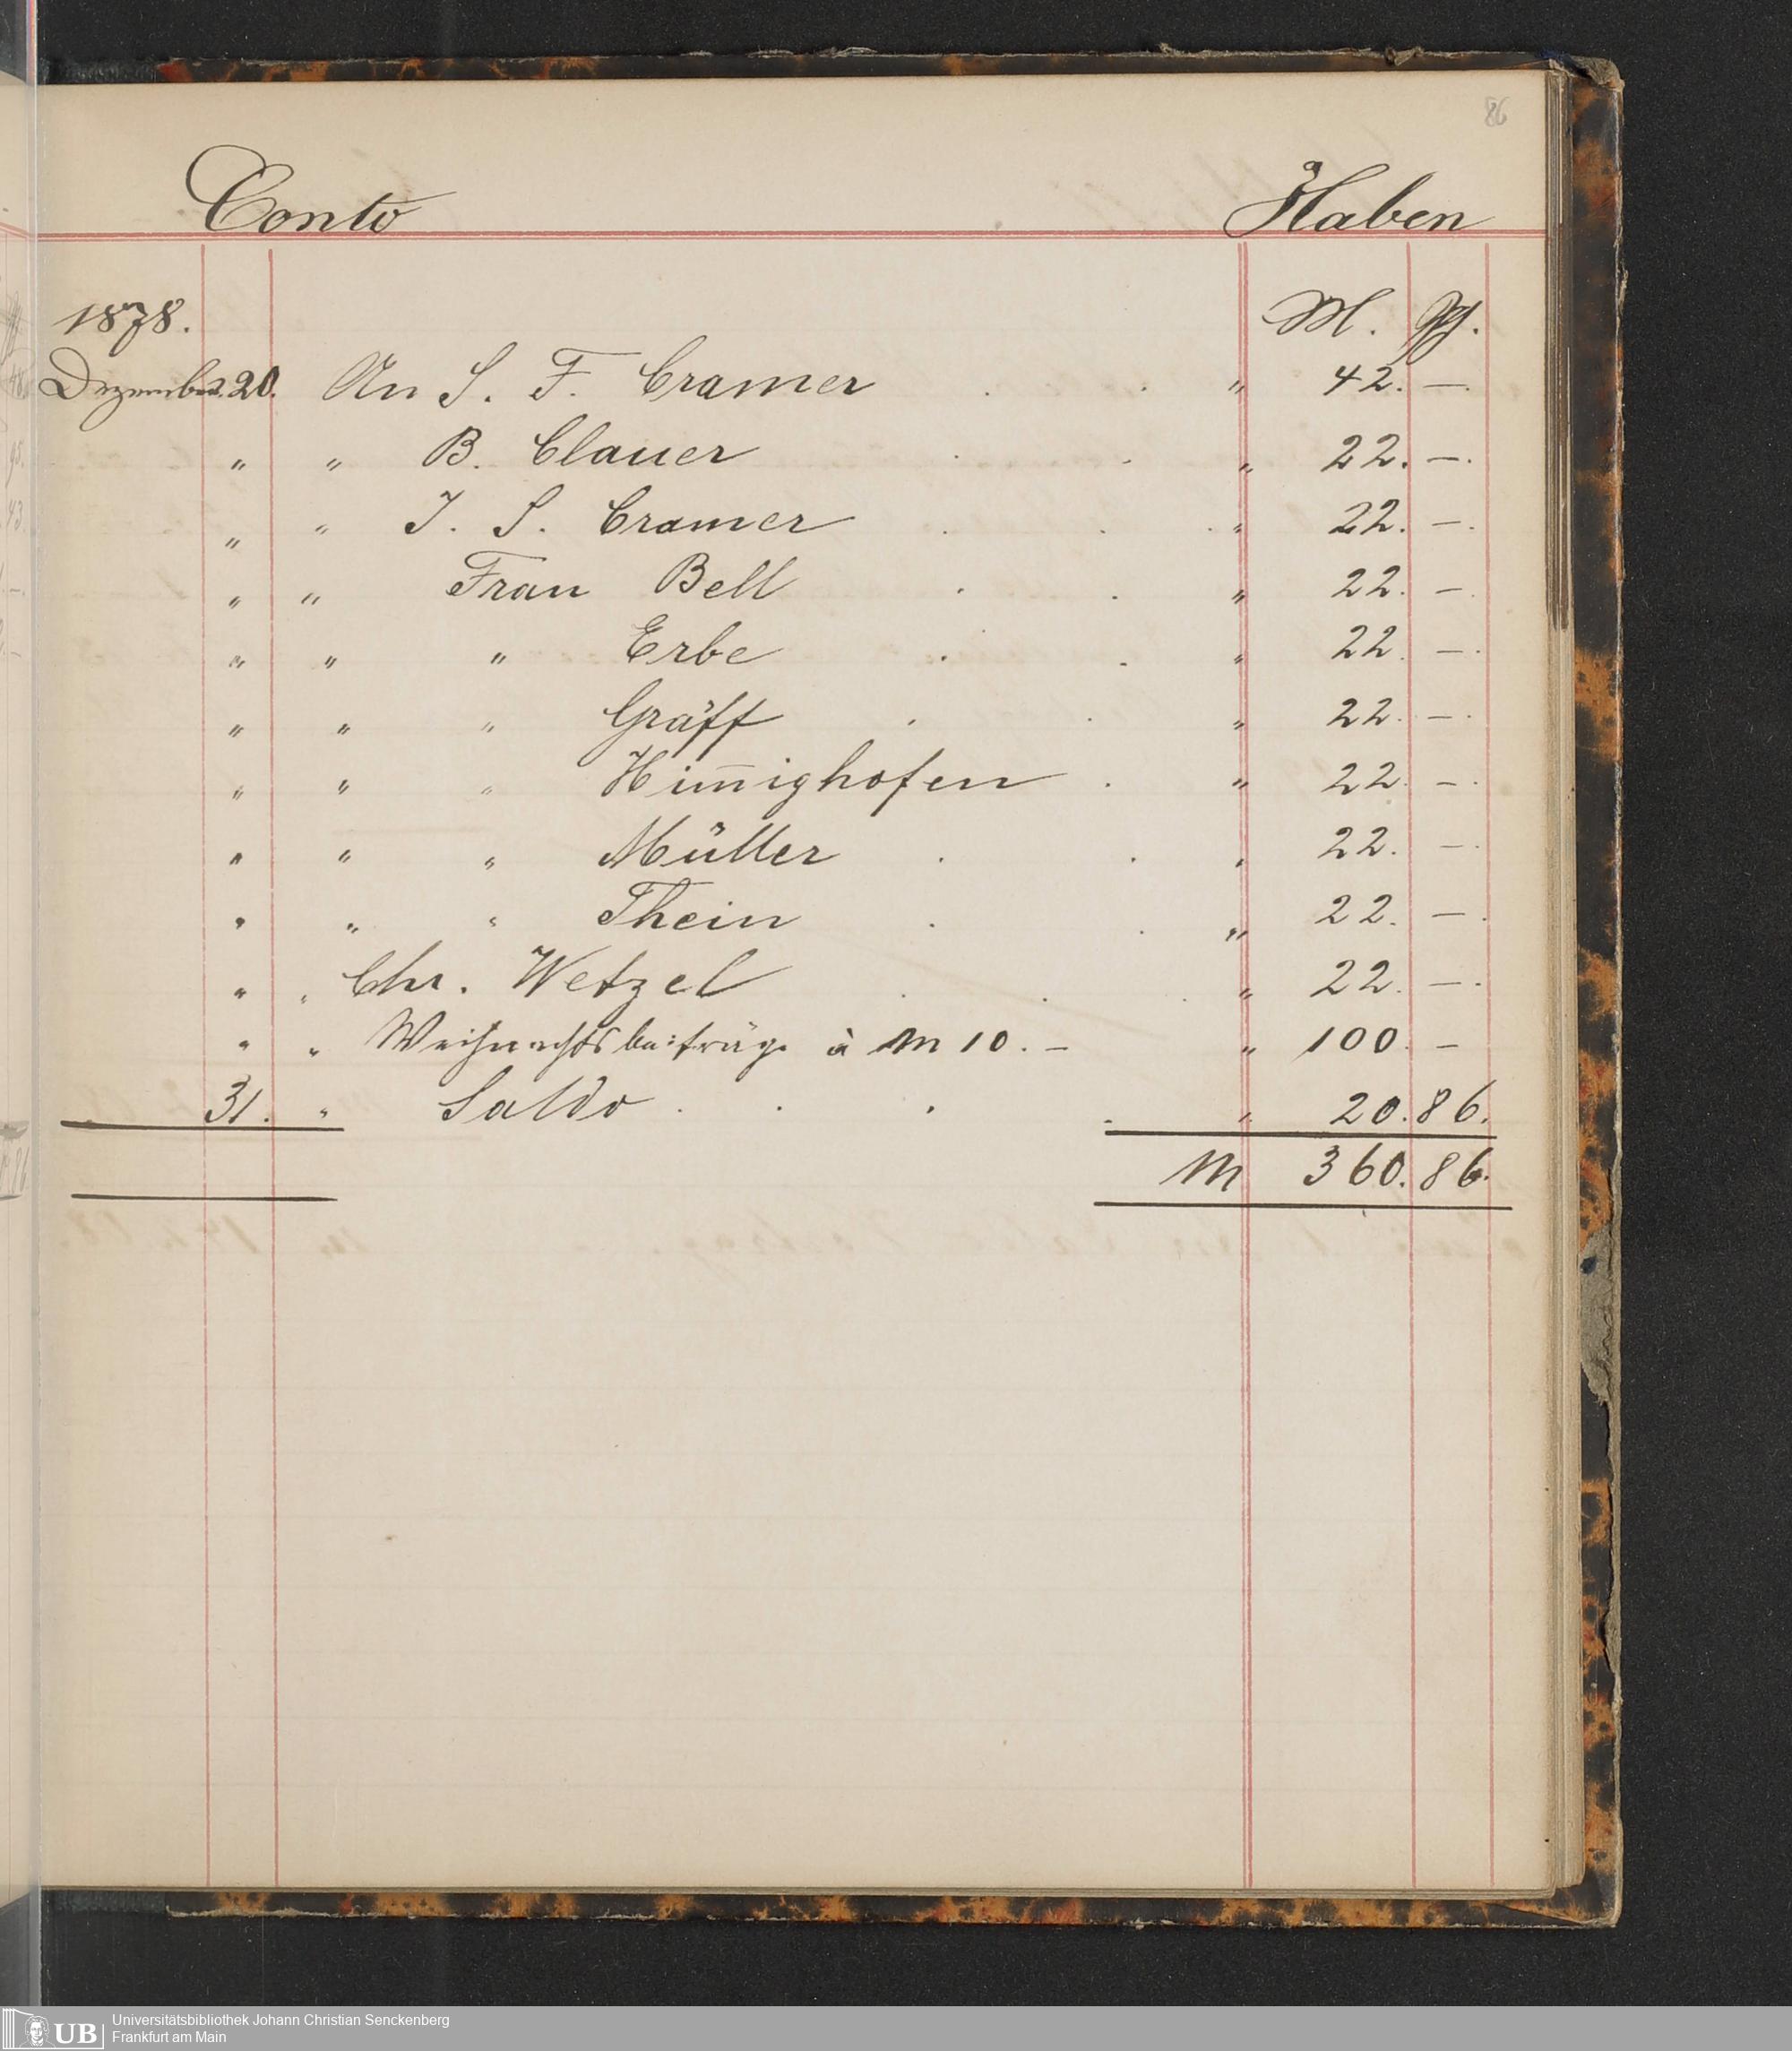 86
Conto Haben
1878. M. Pf.
Dezember 20. An S. F. Cramer . . " 42. —.
" " B. Clauer . . " 22. —.
" " J. S. Cramer . . . " 22. —.
" " Frau Bell . . " 22. —.
" " " Erbe . . " 22. —.
" " " Gräff . . " 22. —.
" " " Him̅ighofen . " 22. —.
" " " Müller . . " 22. —.
" " " Thein . . " 22. —.
" " Chr. Wetzel . . . " 22. —.
" " Weihnachtsbeiträge à M 10. — " 100. —
31. " Saldo . . . . " 20. 86.
M 360. 86.
UB Universitätsbibliothek Johann Christian Senckenberg
Frankfurt am Main